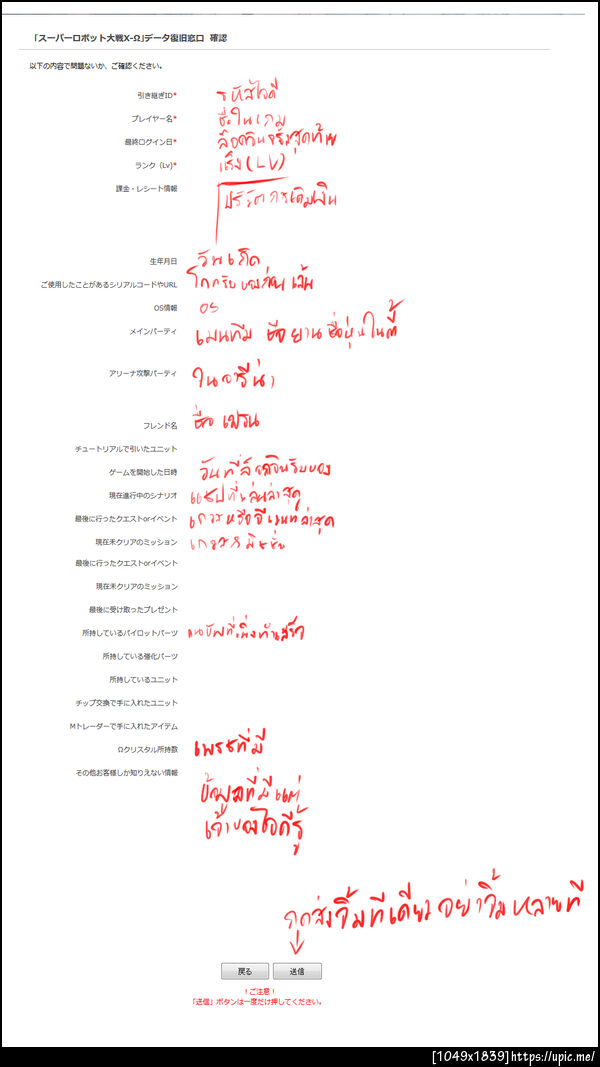 「スーパーロボット大戦X-Ω」データ復旧窓口 確認
以下の内容で問題ないか、ご確認ください。
引き継ぎID* รหัสไอดี
プレイヤー名* ชื่อในเกม
最終ログイン日* ล็อคอินครั้งสุดท้าย
ランク（Lv)* แร๊ง(LV)
課金・レシート情報 ประวัติการเติมเงิน
生年月日 วันเกิด
ご使用したことがあるシリアルコードやURL
OS情報 OS
メインパーティ เมนทีม ชื่อยาน ชื่อหุ่นในตี้
アリーナ攻撃パーティ ในอารีน่า
フレンド名 ชื่อ เฟรน
チュートリアルで引いたユニット
ゲームを開始した日時 วันที่ล็อคอินรับของ
現在進行中のシナリオ แชปที่เล่นล่าสุด
最後に行ったクエストorイベント เควสหรืออีเวนท์ล่าสุด
現在未クリアのミッション เควสมิชชั่น
最後に行ったクエストorイベント
現在未クリアのミッション
最後に受け取ったプレゼント
所持しているパイロットパーツ
所持している強化パーツ
所持しているユニット
チップ交換で手に入れたユニット
Mトレーダーで手に入れたアイテム
Ωクリスタル所持数 เพรชที่มี
その他お客様しか知りえない情報 ข้อมูลที่มีแต่
เจ้าของไอดีรู้
กดส่งจิ้มทีเดียว อย่าจิ้มหลายที
戻る 送信
！ご注意！
「送信」ボタンは一度だけ押してください。
[1049x1839]https://upic.me/